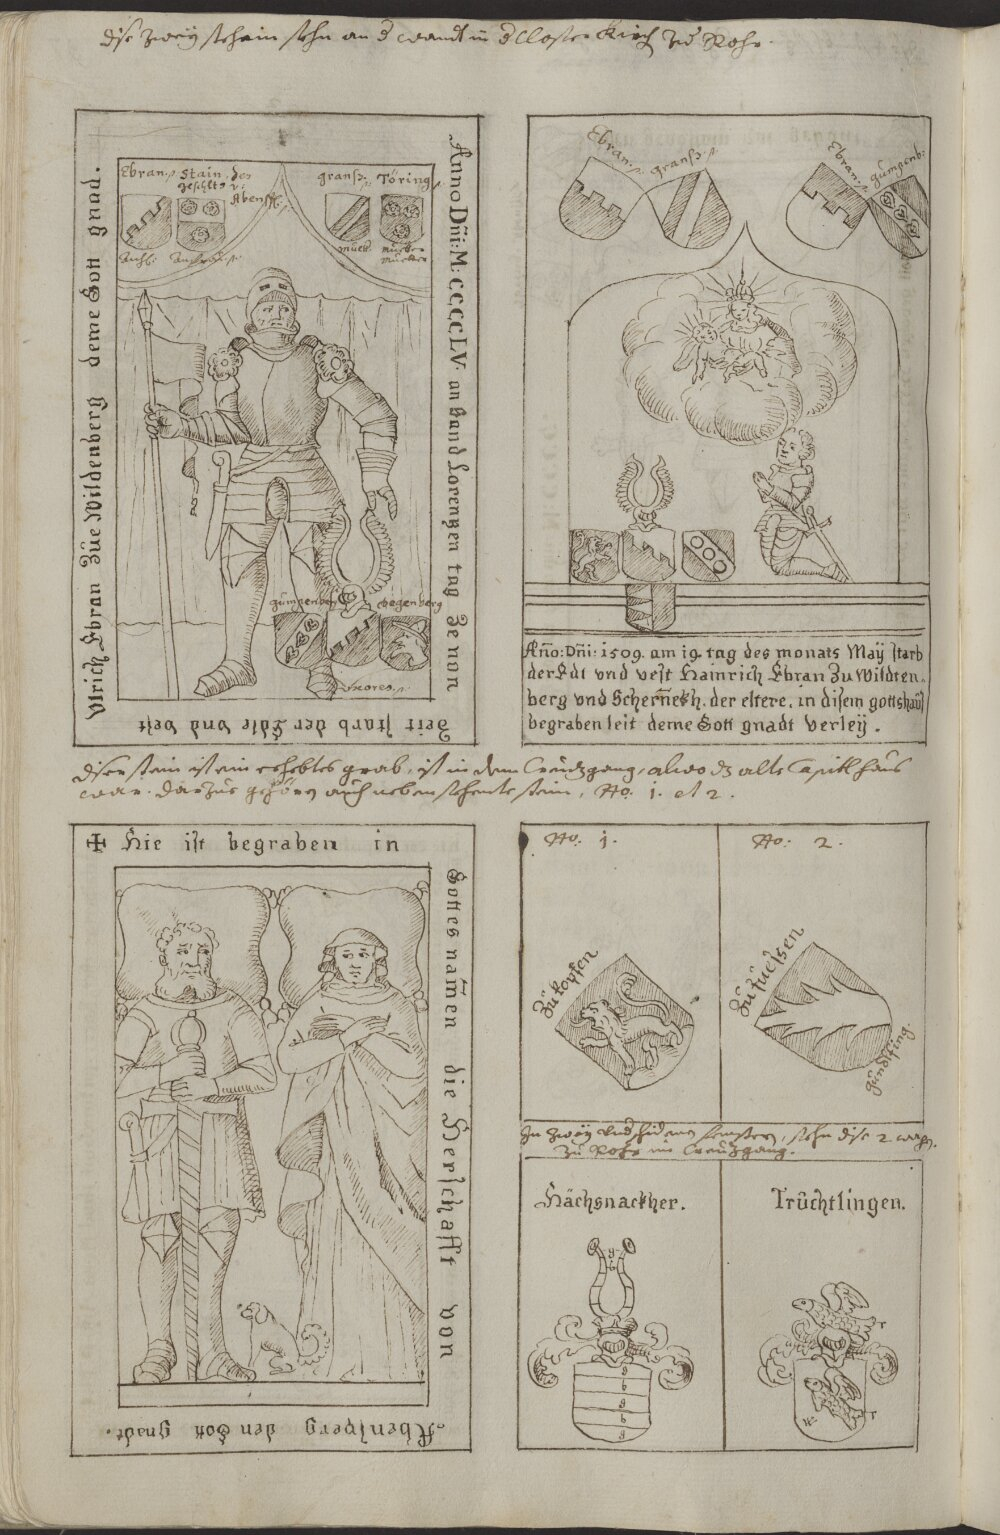 dise zwey stehain stehn an d wandt in d Closter Kirch zu Rohr.
Anno Dni: M: CCCC LV. an Sand Lorenzen tag Ze non
Zeit starb der Edle vnd vest
Vlrich Ebran Züe Wildenberg deme Gott gnad.
Ebran. Stain, des
geschlts v:
Abensp.
granß. Töring
gumpenberg
Wegenberg
Vxores.
Ebran. granß.
Ebran. gumpenb:
Año: Dñi: 1509. am 19. tag des monats Maÿ starb
der Edt vnd vest Hainrich Ebran Zu Wildten-
berg vnd Scherneckh. der eltere, in disem gottshauß
begraben leit deme Gott gnadt Verleÿ.
diser stain ist ein erhebtes grab, ist in dem Creuzgang, alwo dz alte Capitl haus
war. darzue gehören auch neben stehente stein, No. 1. et 2.
✠ Hie ist begraben in
Gottes namen die Herschafft von
Abensperg den Gott gnadt.
No: 1.
Zu kopfen
No: 2.
gundlfing
In zwey vnd[schidenen] fenstern, stehn dise 2 wapen.
Zu Rohr im Creuzgang.
Hächsnackher.
g
b
g
b
g
b
g
Trüchtlingen.
r
w
r